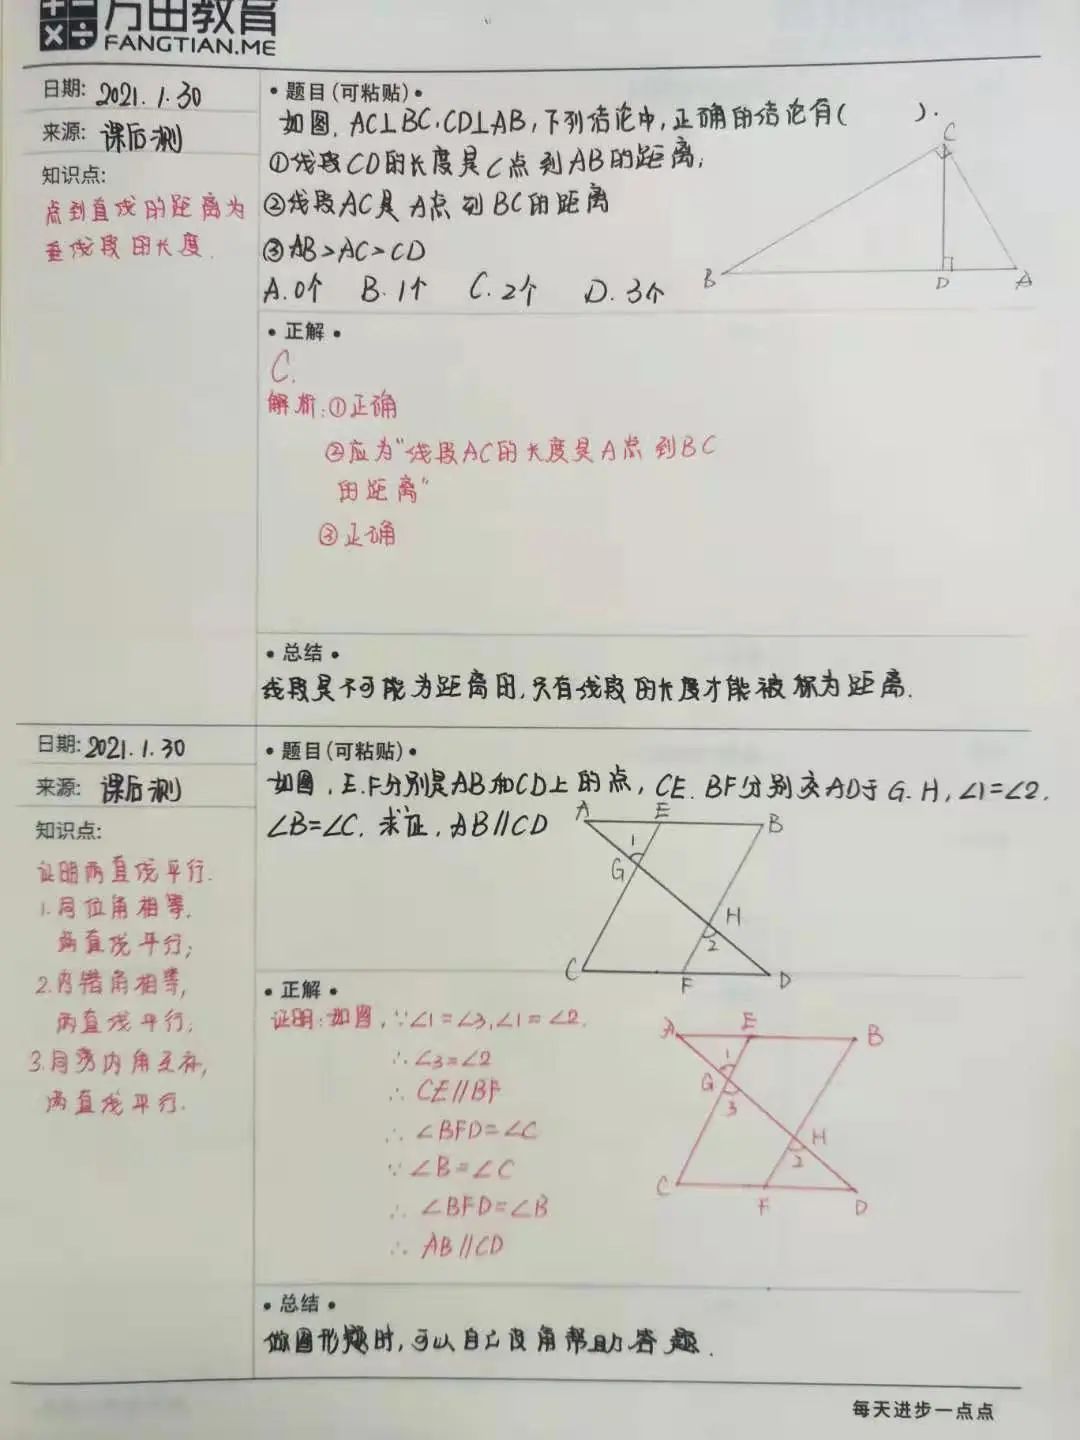 方田教育
FANGTIAN.ME
日期: 2021.1.30
来源: 课后测
知识点:
点到直线的距离为
垂线段的长度.
• 题目(可粘贴) •
如图, AC⊥BC, CD⊥AB, 下列结论中, 正确的结论有( ).
①线段CD的长度是C点到AB的距离;
②线段AC是A点到BC的距离
③AB>AC>CD
A.0个 B.1个 C.2个 D.3个
C
B D A
• 正解 •
C.
解析:①正确
②应为“线段AC的长度是A点到BC
的距离”
③正确
• 总结 •
线段是不可能为距离的,只有线段的长度才能被称为距离.
日期: 2021.1.30
来源: 课后测
知识点:
证明两直线平行.
1.同位角相等,
两直线平行;
2.内错角相等,
两直线平行;
3.同旁内角互补,
两直线平行.
• 题目(可粘贴) •
如图, E.F分别是AB和CD上的点, CE. BF分别交AD于G. H, ∠1=∠2.
∠B=∠C. 求证, AB∥CD
A E B
1
G
H
2
C F D
• 正解 •
证明:如图,∵∠1=∠3,∠1=∠2.
∴∠3=∠2
∴CE∥BF
∴∠BFD=∠C
∵∠B=∠C
∴∠BFD=∠B
∴AB∥CD
A E B
1
G
3
H
2
C F D
• 总结 •
做图形题时,可以自己设角帮助答题.
每天进步一点点